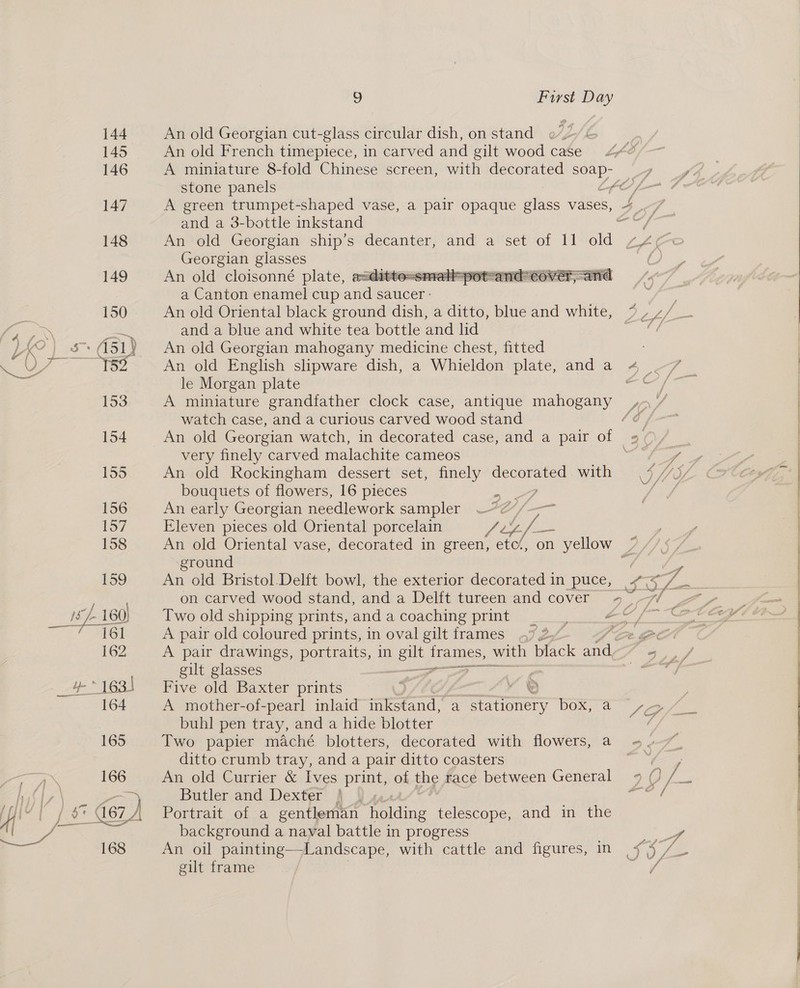 9 First Day
144 An old Georgian cut-glass circular dish, on stand
145 An old French timepiece, in carved and gilt wood case
146 A miniature 8-fold Chinese screen, with decorated soap-
stone panels
147 A green trumpet-shaped vase, a pair opaque glass vases,
and a 3-bottle inkstand
148 An old Georgian ship's decanter, and a set of 11 old
Georgian glasses
149 An old cloisonné plate, a ditto small pot and cover, and
a Canton enamel cup and saucer
150 An old Oriental black ground dish, a ditto, blue and white,
and a blue and white tea bottle and lid
151 An old Georgian mahogany medicine chest, fitted
152 An old English slipware dish, a Whieldon plate, and a
le Morgan plate
153 A miniature grandfather clock case, antique mahogany
watch case, and a curious carved wood stand
154 An old Georgian watch, in decorated case, and a pair of
very finely carved malachite cameos
155 An old Rockingham dessert set, finely decorated with
bouquets of flowers, 16 pieces
156 An early Georgian needlework sampler
157 Eleven pieces old Oriental porcelain
158 An old Oriental vase, decorated in green, etc., on yellow
ground
159 An old Bristol Delft bowl, the exterior decorated in puce,
on carved wood stand, and a Delft tureen and cover
160 Two old shipping prints, and a coaching print
161 A pair old coloured prints, in oval gilt frames
162 A pair drawings, portraits, in gilt frames, with black and
gilt glasses
163 Five old Baxter prints
164 A mother-of-pearl inlaid inkstand, a stationery box, a
buhl pen tray, and a hide blotter
165 Two papier mâché blotters, decorated with flowers, a
ditto crumb tray, and a pair ditto coasters
166 An old Currier & Ives print, of the race between General
Butler and Dexter
167 Portrait of a gentleman holding telescope, and in the
background a naval battle in progress
168 An oil painting—Landscape, with cattle and figures, in
gilt frame